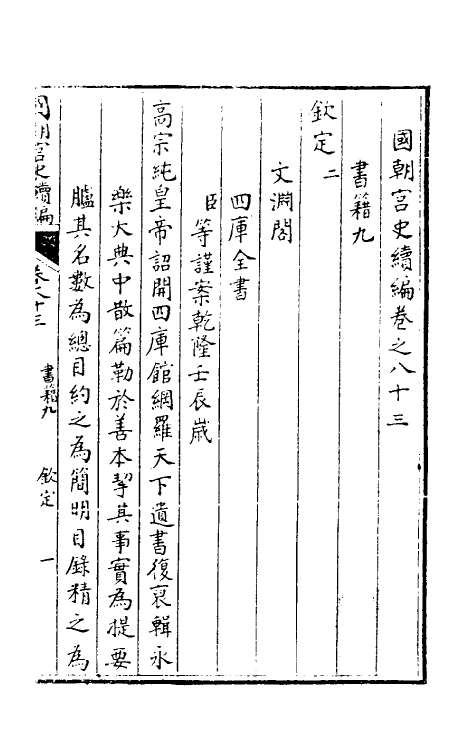 國朝宮史續編卷之八十三
書籍九
欽定二
文淵閣
四庫全書
臣等謹案乾隆壬辰歲
高宗純皇帝詔開四庫館網羅天下遺書復裒輯永
樂大典中散篇勒於善本挈其事實為提要
臚其名數為總目約之為簡明目錄精之為
國朝宮史續編 卷之八十三 書籍九 欽定 一